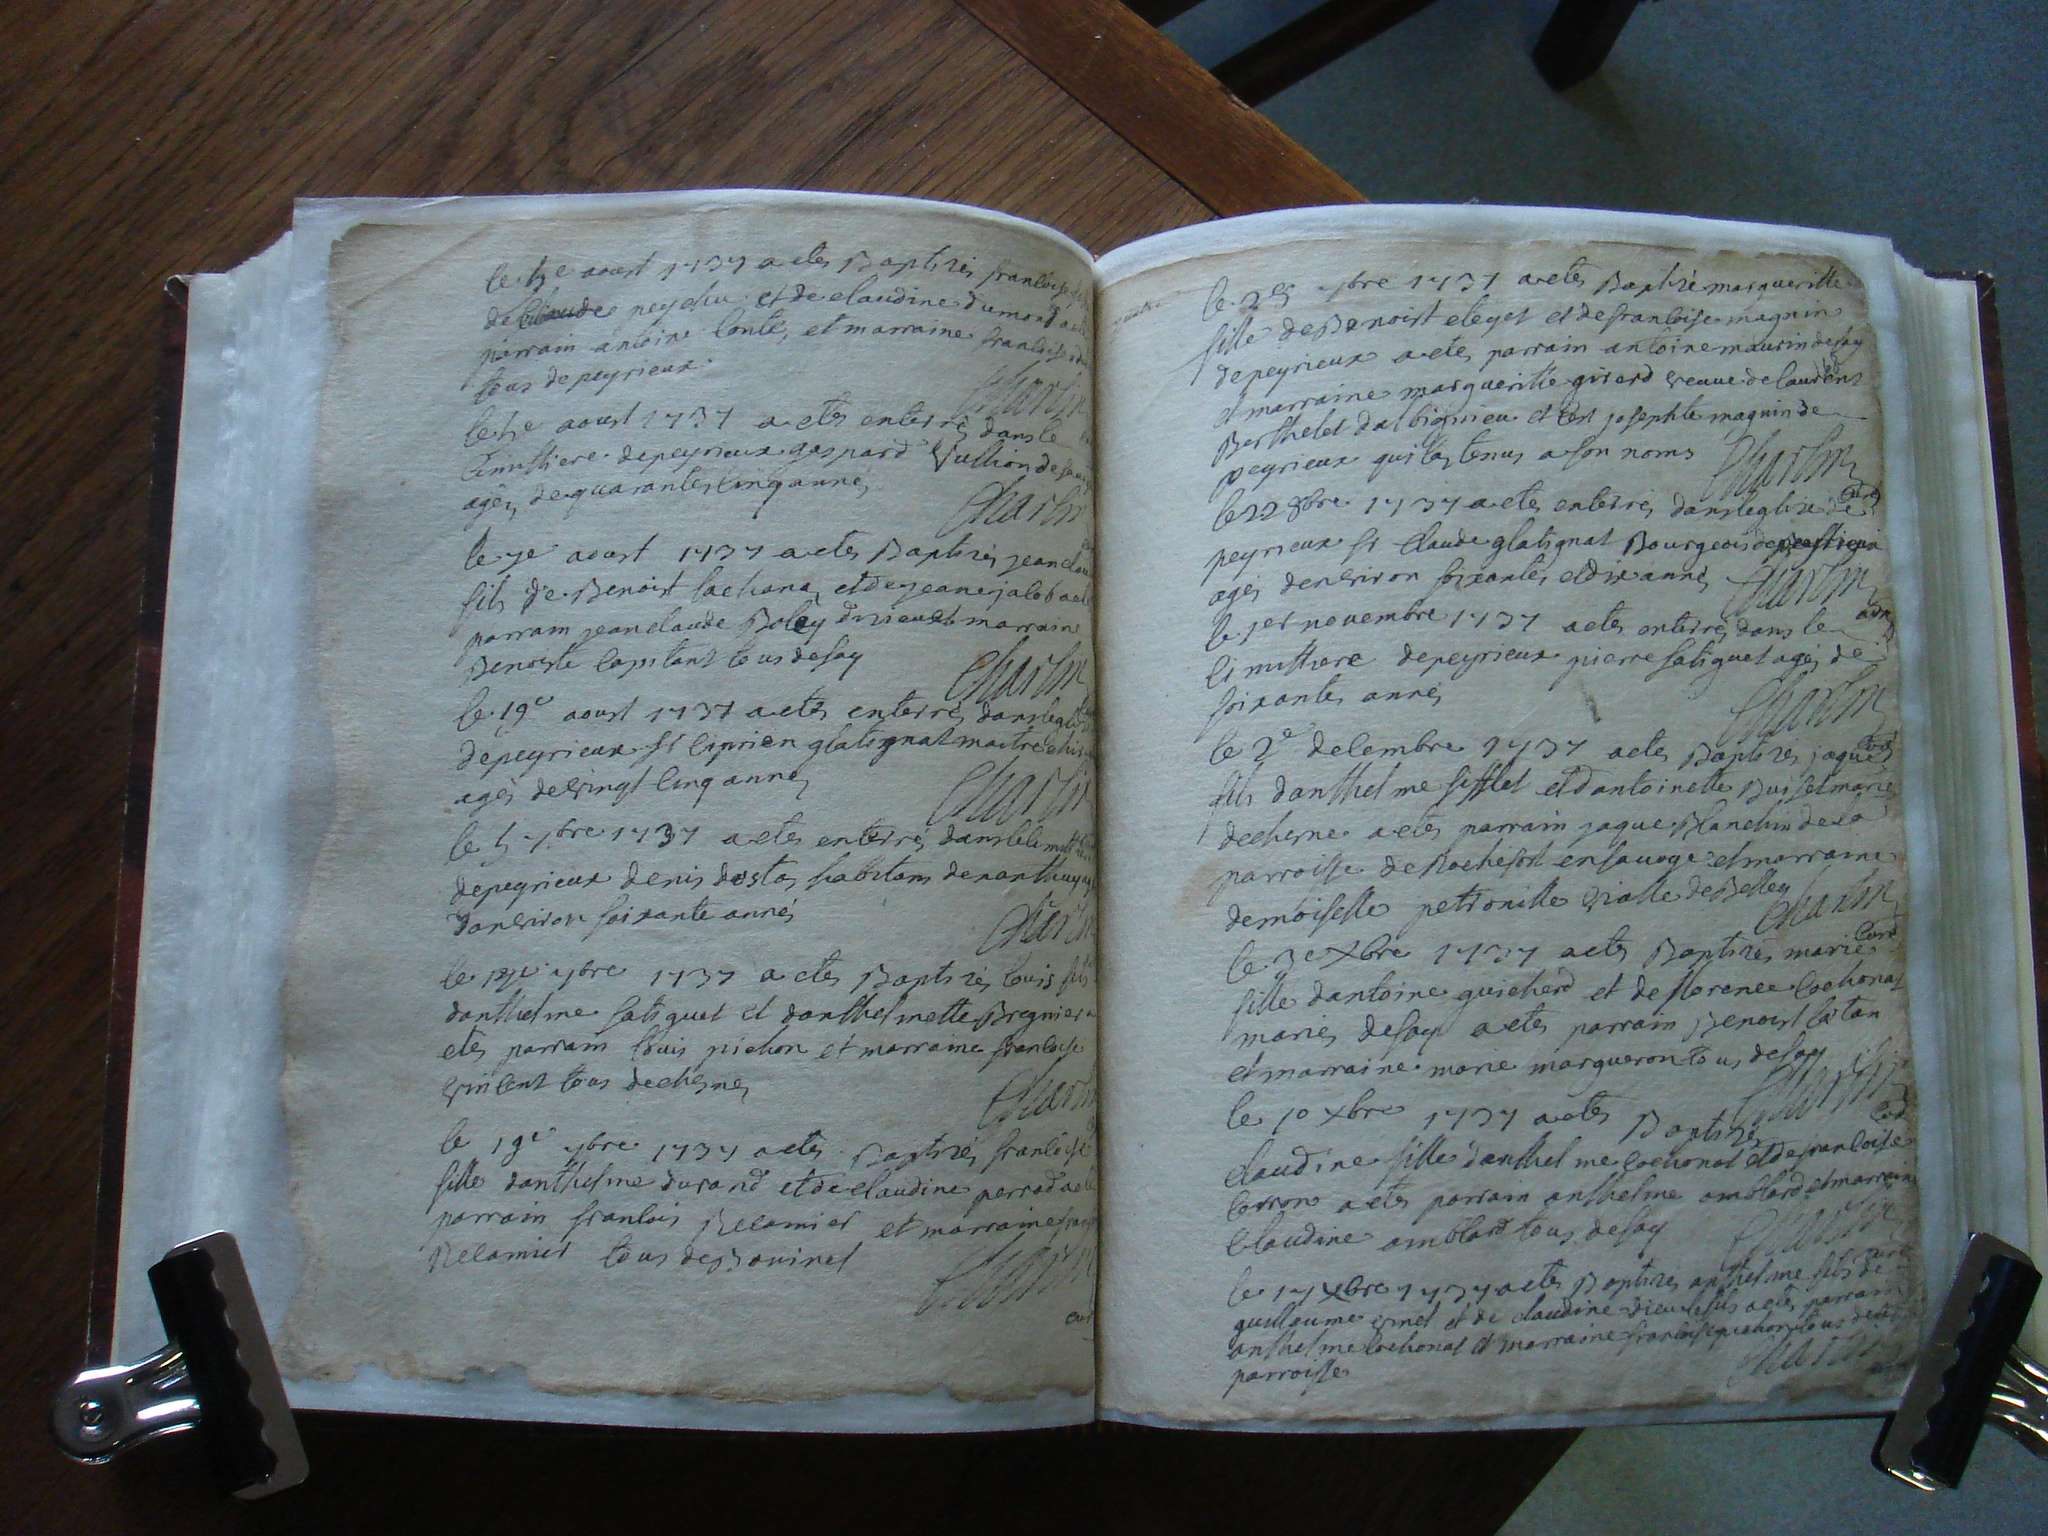 le 5e aoust 1737 a etes Baptisés francoise
de claude peychu et de claudine dumond a
parrain antoine conte, et marraine francoise
tous de peyrieux
Charlin
le 5e aoust 1737 a etes enterrés dans le
Cimitiere de peyrieux gaspard Vullion de
agés de quarantes cinq annés
Charlin
le 7e aoust 1737 a etes Baptisés jean
fils de Benoist Cochona et de jeane jacob a
parrain jean claude Boley et marraine
Benoite Capitant tous de fay
Charlin
le 19e aoust 1737 a etes enterrés dans
de peyrieux sr Ciprien glatignat maitre
agés de vingt cinq annés
Charlin
le 5 7bre 1737 a etes enterrés dans
de peyrieux denis dostas habitans de nanthuy
d'anviron soixante annés
Charlin
le 7bre 1737 a etes Baptisés louis fils
d'anthelme fatiguet et d'anthelmette Bregnier a
etes parram louis pichon et marraine francoise
vincent tous de chesnes
Charlin
le 19e 7bre 1737 a etes Baptisés francoise
fille danthelme durand et de claudine perrod a ete
parrain francois Recamier et marraine
Recamier tous de Bouinel
Charlin
cure
le 7bre 1737 a etes Baptisé margueritte
fille de Benoist eleyet et de francoise magnin
de peyrieux a etes parrain antoine maurin de fay
et marraine margueritte girard veuve de laurent
Berthelet d'albignieu et cest joseph le magnin de
peyrieux qui l'as tenus a son noms
Charlin
curé
le 22 8bre 1737 a etes enterrés dans leglise de
peyrieux sr Claude glatignat Bourgeois de peyrieux
agés denviron soixantes et dix annés
Charlin
le 1er novembre 1737 a etes enterrés dans le
Cimittiere de peyrieux pierre fatiguet agés de
soixantes annés
Charlin
le 2e decembre 1737 a etes Baptisés jaques
fils d'anthelme sifflet et d'antoinette Buisset mariés
de chesne a etes parrain jaque Blanchin de la
parroisse de Rochefort en savoye et marraine
demoiselle petronille violle de Belley
Charlin
curé
le 3e Xbre 1737 a etes Baptisés marie
fille d'antoine guicherd et de florence Cochonat
mariés de fay a etes parrain Benoist Catan
et marraine marie margueron tous de fay
Charlin
curé
le 10 Xbre 1737 a etes Baptisés
Claudine fille d'anthelme Cochonat et de francoise
Carron a etes parrain anthelme amblard et marraine
Claudine amblard tous de fay
Charlin
curé
le 17 Xbre 1737 a etes Baptisés anthelme fils de
guillaume vinet et de claudine dieulefils a etes parrain
anthelme Cochonat et marraine francoise pichon tous de
parroisse
Charlin